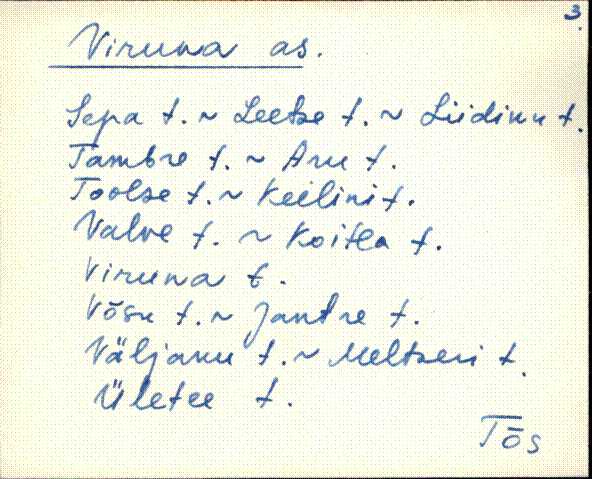 3.
Viruna as.
Sepa t. ~ Leetse t. ~ Liidinu t.
Tambre t. ~ Aru t.
Toolse t. ~ Keilini t.
Valve t. ~ Koitla t.
Viruna t.
Võsu t. ~ Jantre t.
Väljanu t. ~ Meltseri t.
Ületee t.
Tõs